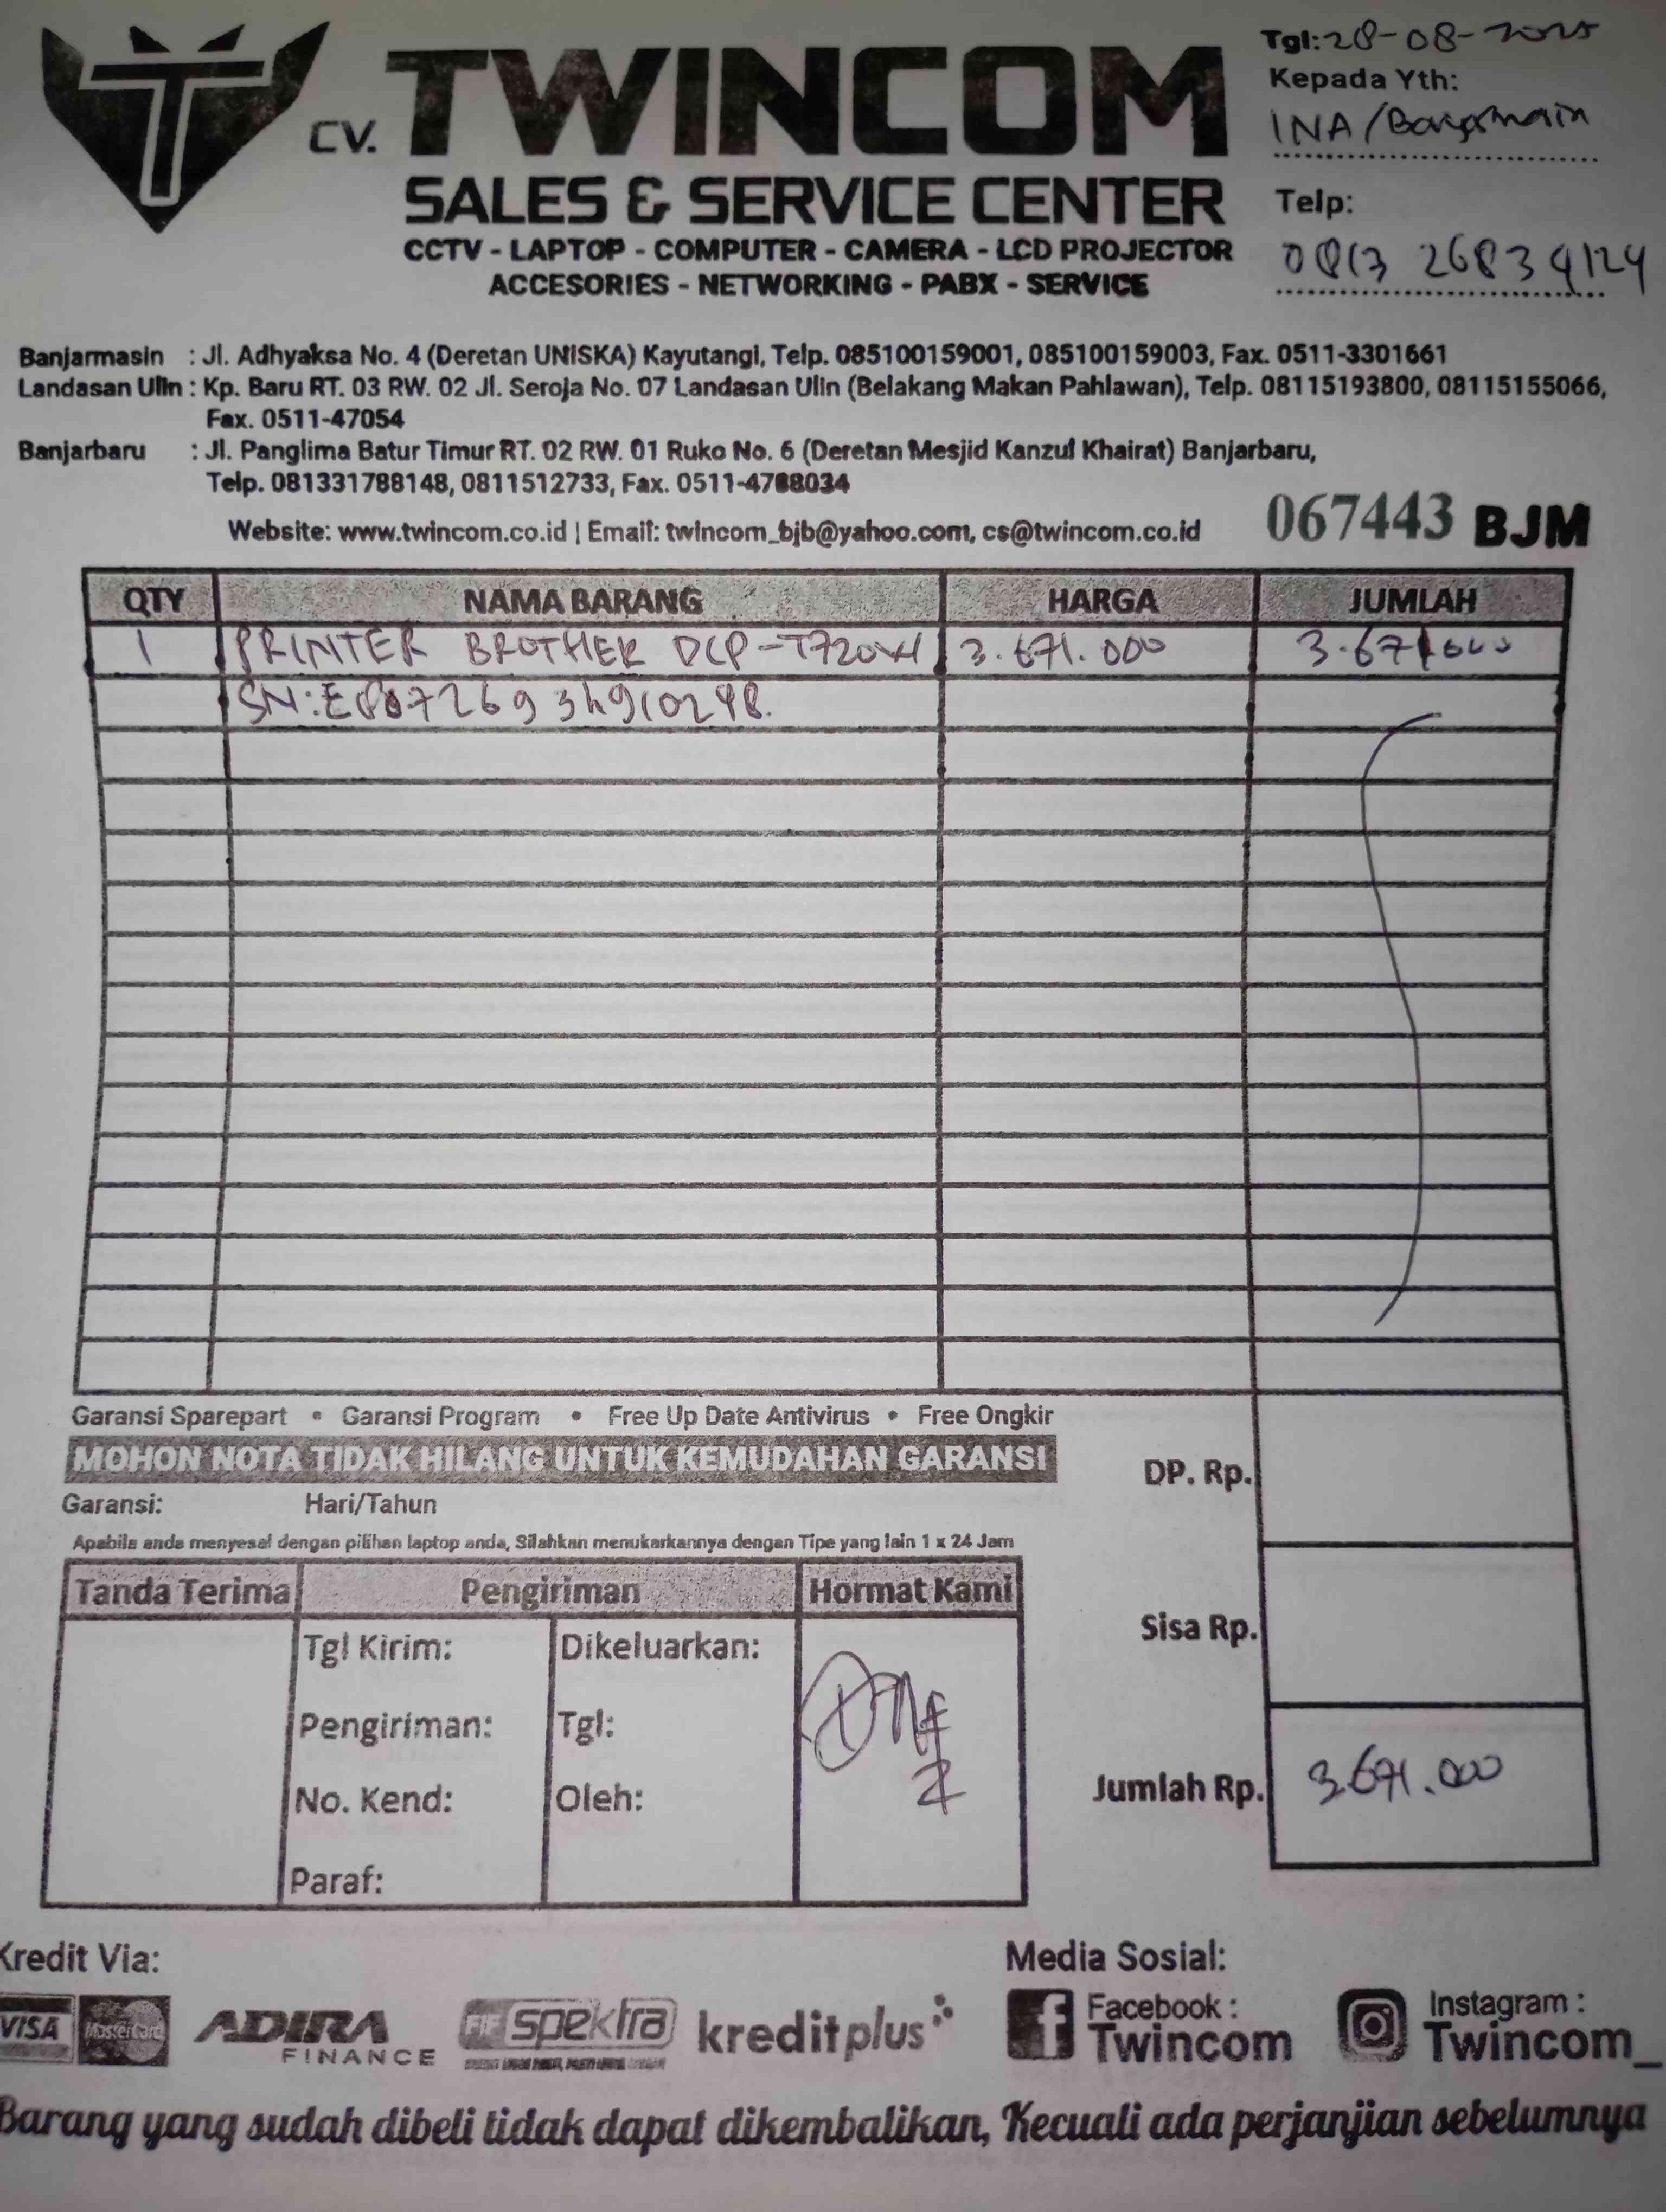 CV. TWINCOM
SALES & SERVICE CENTER
CCTV - LAPTOP - COMPUTER - CAMERA - LCD PROJECTOR
ACCESORIES - NETWORKING - PABX - SERVICE
Tgl: 28-08-2025
Kepada Yth:
INA /
Telp:
Banjarmasin : Jl. Adhyaksa No. 4 (Deretan UNISKA) Kayutangi, Telp. 085100159001, 085100159003, Fax. 0511-3301661
Landasan Ulin : Kp. Baru RT. 03 RW. 02 Jl. Seroja No. 07 Landasan Ulin (Belakang Makan Pahlawan), Telp. 08115193800, 08115155066,
Fax. 0511-47054
Banjarbaru : Jl. Panglima Batur Timur RT. 02 RW. 01 Ruko No. 6 (Deretan Mesjid Kanzul Khairat) Banjarbaru,
Telp. 081331788148, 0811512733, Fax. 0511-4788034
Website: www.twincom.co.id | Email: twincom_bjb@yahoo.com, cs@twincom.co.id
067443 BJM
QTY NAMA BARANG HARGA JUMLAH
1 PRINTER BROTHER DCP-T720DW 3.671.000 3.671.000
SN:
Garansi Sparepart • Garansi Program • Free Up Date Antivirus • Free Ongkir
MOHON NOTA TIDAK HILANG UNTUK KEMUDAHAN GARANSI
Garansi: Hari/Tahun
Apabila anda menyesal dengan pilihan laptop anda, Silahkan menukarkannya dengan Tipe yang lain 1 x 24 Jam
DP. Rp.
Sisa Rp.
Jumlah Rp. 3.671.000
Tanda Terima Pengiriman Hormat Kami
Tgl Kirim: Dikeluarkan:
Pengiriman: Tgl:
No. Kend: Oleh:
Paraf:
Kredit Via:
VISA MasterCard ADIRA FINANCE FIF spektra kreditplus
Media Sosial:
Facebook : Twincom
Instagram : Twincom_
Barang yang sudah dibeli tidak dapat dikembalikan, Kecuali ada perjanjian sebelumnya